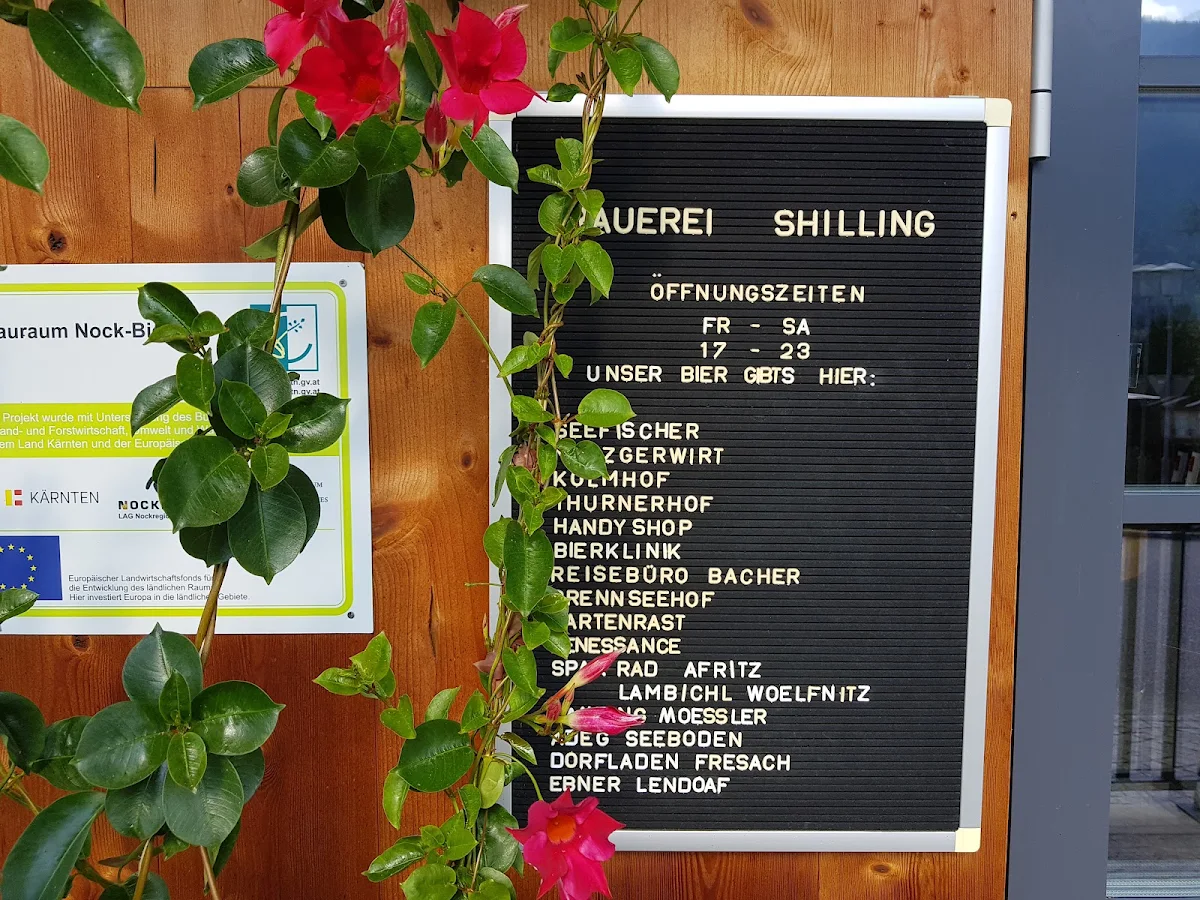 auraum Nock-Bi
tn.gv.at
tn.gv.at
Projekt wurde mit Unters ung des B
and- und Forstwirtschaft, mwelt und
em Land Kärnten und der Europäis
KÄRNTEN
NOCK
LAG Nockregio
Europäischer Landwirtschaftsfonds für
die Entwicklung des ländlichen Raum
Hier investiert Europa in die ländliche Gebiete.
AUEREI SHILLING
ÖFFNUNGSZEITEN
FR - SA
17 - 23
UNSER BIER GIBTS HIER:
SEEFISCHER
ZGERWIRT
KOLMHOF
THURNERHOF
HANDYSHOP
BIERKLINIK
REISEBÜRO BACHER
BRENNSEEHOF
ARTENRAST
ENESSANCE
SPA RAD AFRITZ
LAMBICHL WOELFNITZ
MOESSLER
ADEG SEEBODEN
DORFLADEN FRESACH
EBNER LENDOAF